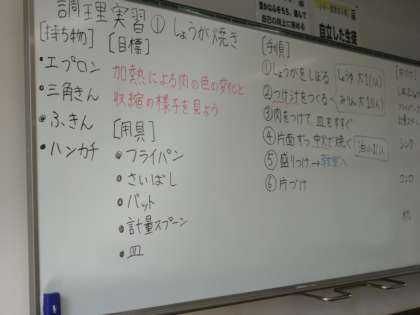 調理実習① しょうが焼き
[持ち物]
・エプロン
・三角きん
・ふきん
・ハンカチ
[目標]
加熱による肉の色の変化と
収縮の様子を見よう
[用具]
・フライパン
・さいばし
・バット
・計量スプーン
・皿
[手順]
①しょうがをしぼる
②つけ汁をつくる
③肉をつけて、皿をすすぐ
④片面ずつ中火で焼く
⑤盛りつけ→
⑥片づけ
シンク
コンロ
自立した生徒